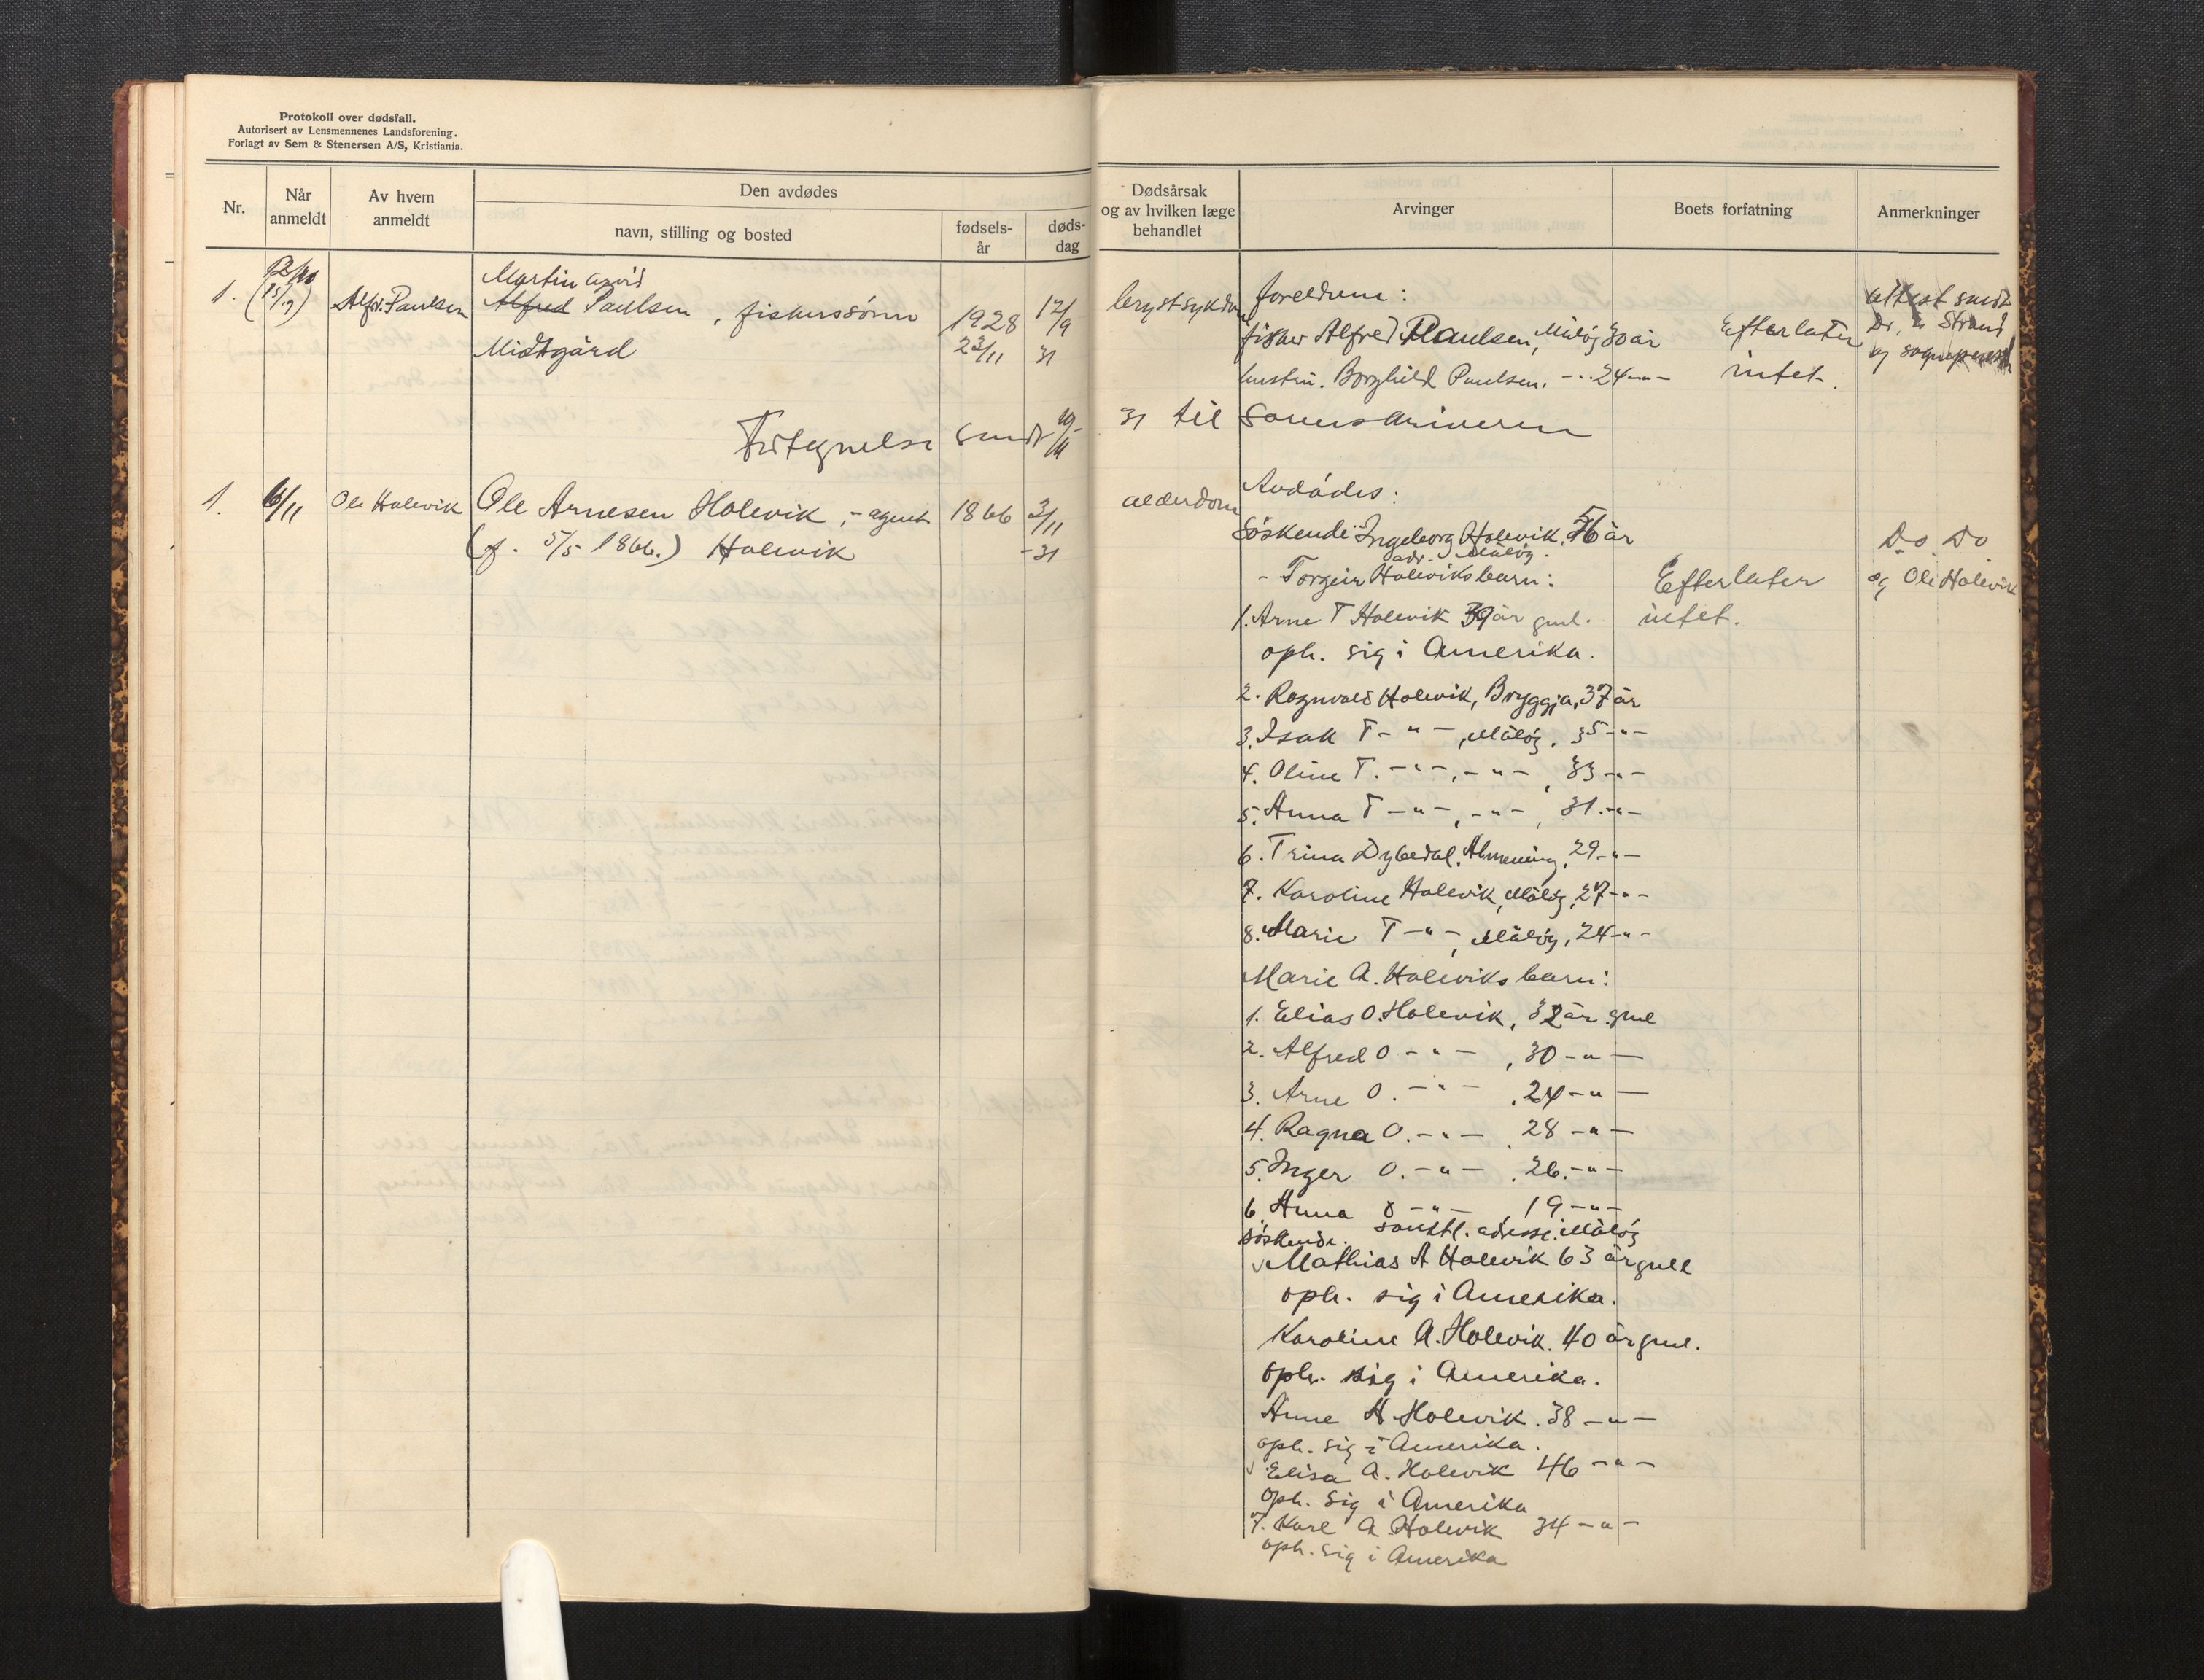 Protokoll over dødsfall.
Autorisert av Lensmennenes Landsforening.
Forlagt av Sem & Stenersen A/S, Kristiania.
Nr.
Når anmeldt
Av hvem anmeldt
Den avdødes
navn, stilling og bosted
fødsels-år
døds-dag
Dødsårsak og av hvilken læge behandlet
Arvinger
Boets forfatning
Anmerkninger
1. (15/9) Alfr. Paulsen
Martin Arvid
Alfred Paulsen, fiskerssönn 1928 12/9
Midtgård 23/11 31
brystsykdom
foreldrene:
fisker Alfred Paulsen, Målöy 30 år
hustru. Borghild Paulsen. -"- 24 -"-
Efterlater
intet.
attest sendt
Dr. Strand
og sogneprest
Fortegnelse sendt 10/11 31 til Sorenskriveren
1. 6/11 Ole Holevik Ole Arnesen Holevik, - agent 1866 3/11
(f. 5/5 1866.) Holevik -31
alderdom
Avdödes:
Söskende: Ingeborg Holevik, 56 år
adr. Målöy.
- Torgeir Holeviks barn:
1. Arne T Holevik 39 år gml.
oph. sig i Amerika.
2. Ragnvald Holevik, Bryggja, 37 år
3. Isak T -"-, Målöy, 35 -"-
4. Oline T. -"-, -"-, 33 -"-
5. Anna T -"-, -"-, 31. -"-
6. Trina Dybedal, Almenning, 29 -"-
7. Karoline Holevik, Målöy, 27 -"-
8. Marie T -"-, Målöy, 24 -"-
Marie A. Holeviks barn:
1. Elias O. Holevik, 32 år gml
2. Alfred O -"-, 30 -"-
3. Arne O. -"-, 24 -"-
4. Ragna O. -"-, 28 -"-
5. Inger O. -"-, 26. -"-
6. Anna O -"-, 19 -"-
samtl. adresse: Målöy
söskende.
Mathias A Holevik 63 år gml
oph. sig i Amerika.
Karoline A. Holevik. 40 år gml.
oph. sig i Amerika.
Anne A Holevik. 38 -"-
oph. sig i Amerika.
Elisa A. Holevik 46 -"-
oph. sig i Amerika
7. Karl A Holevik 34 -"-
oph. sig i Amerika
Efterlater
intet.
Do. Do
og Ole Holevik